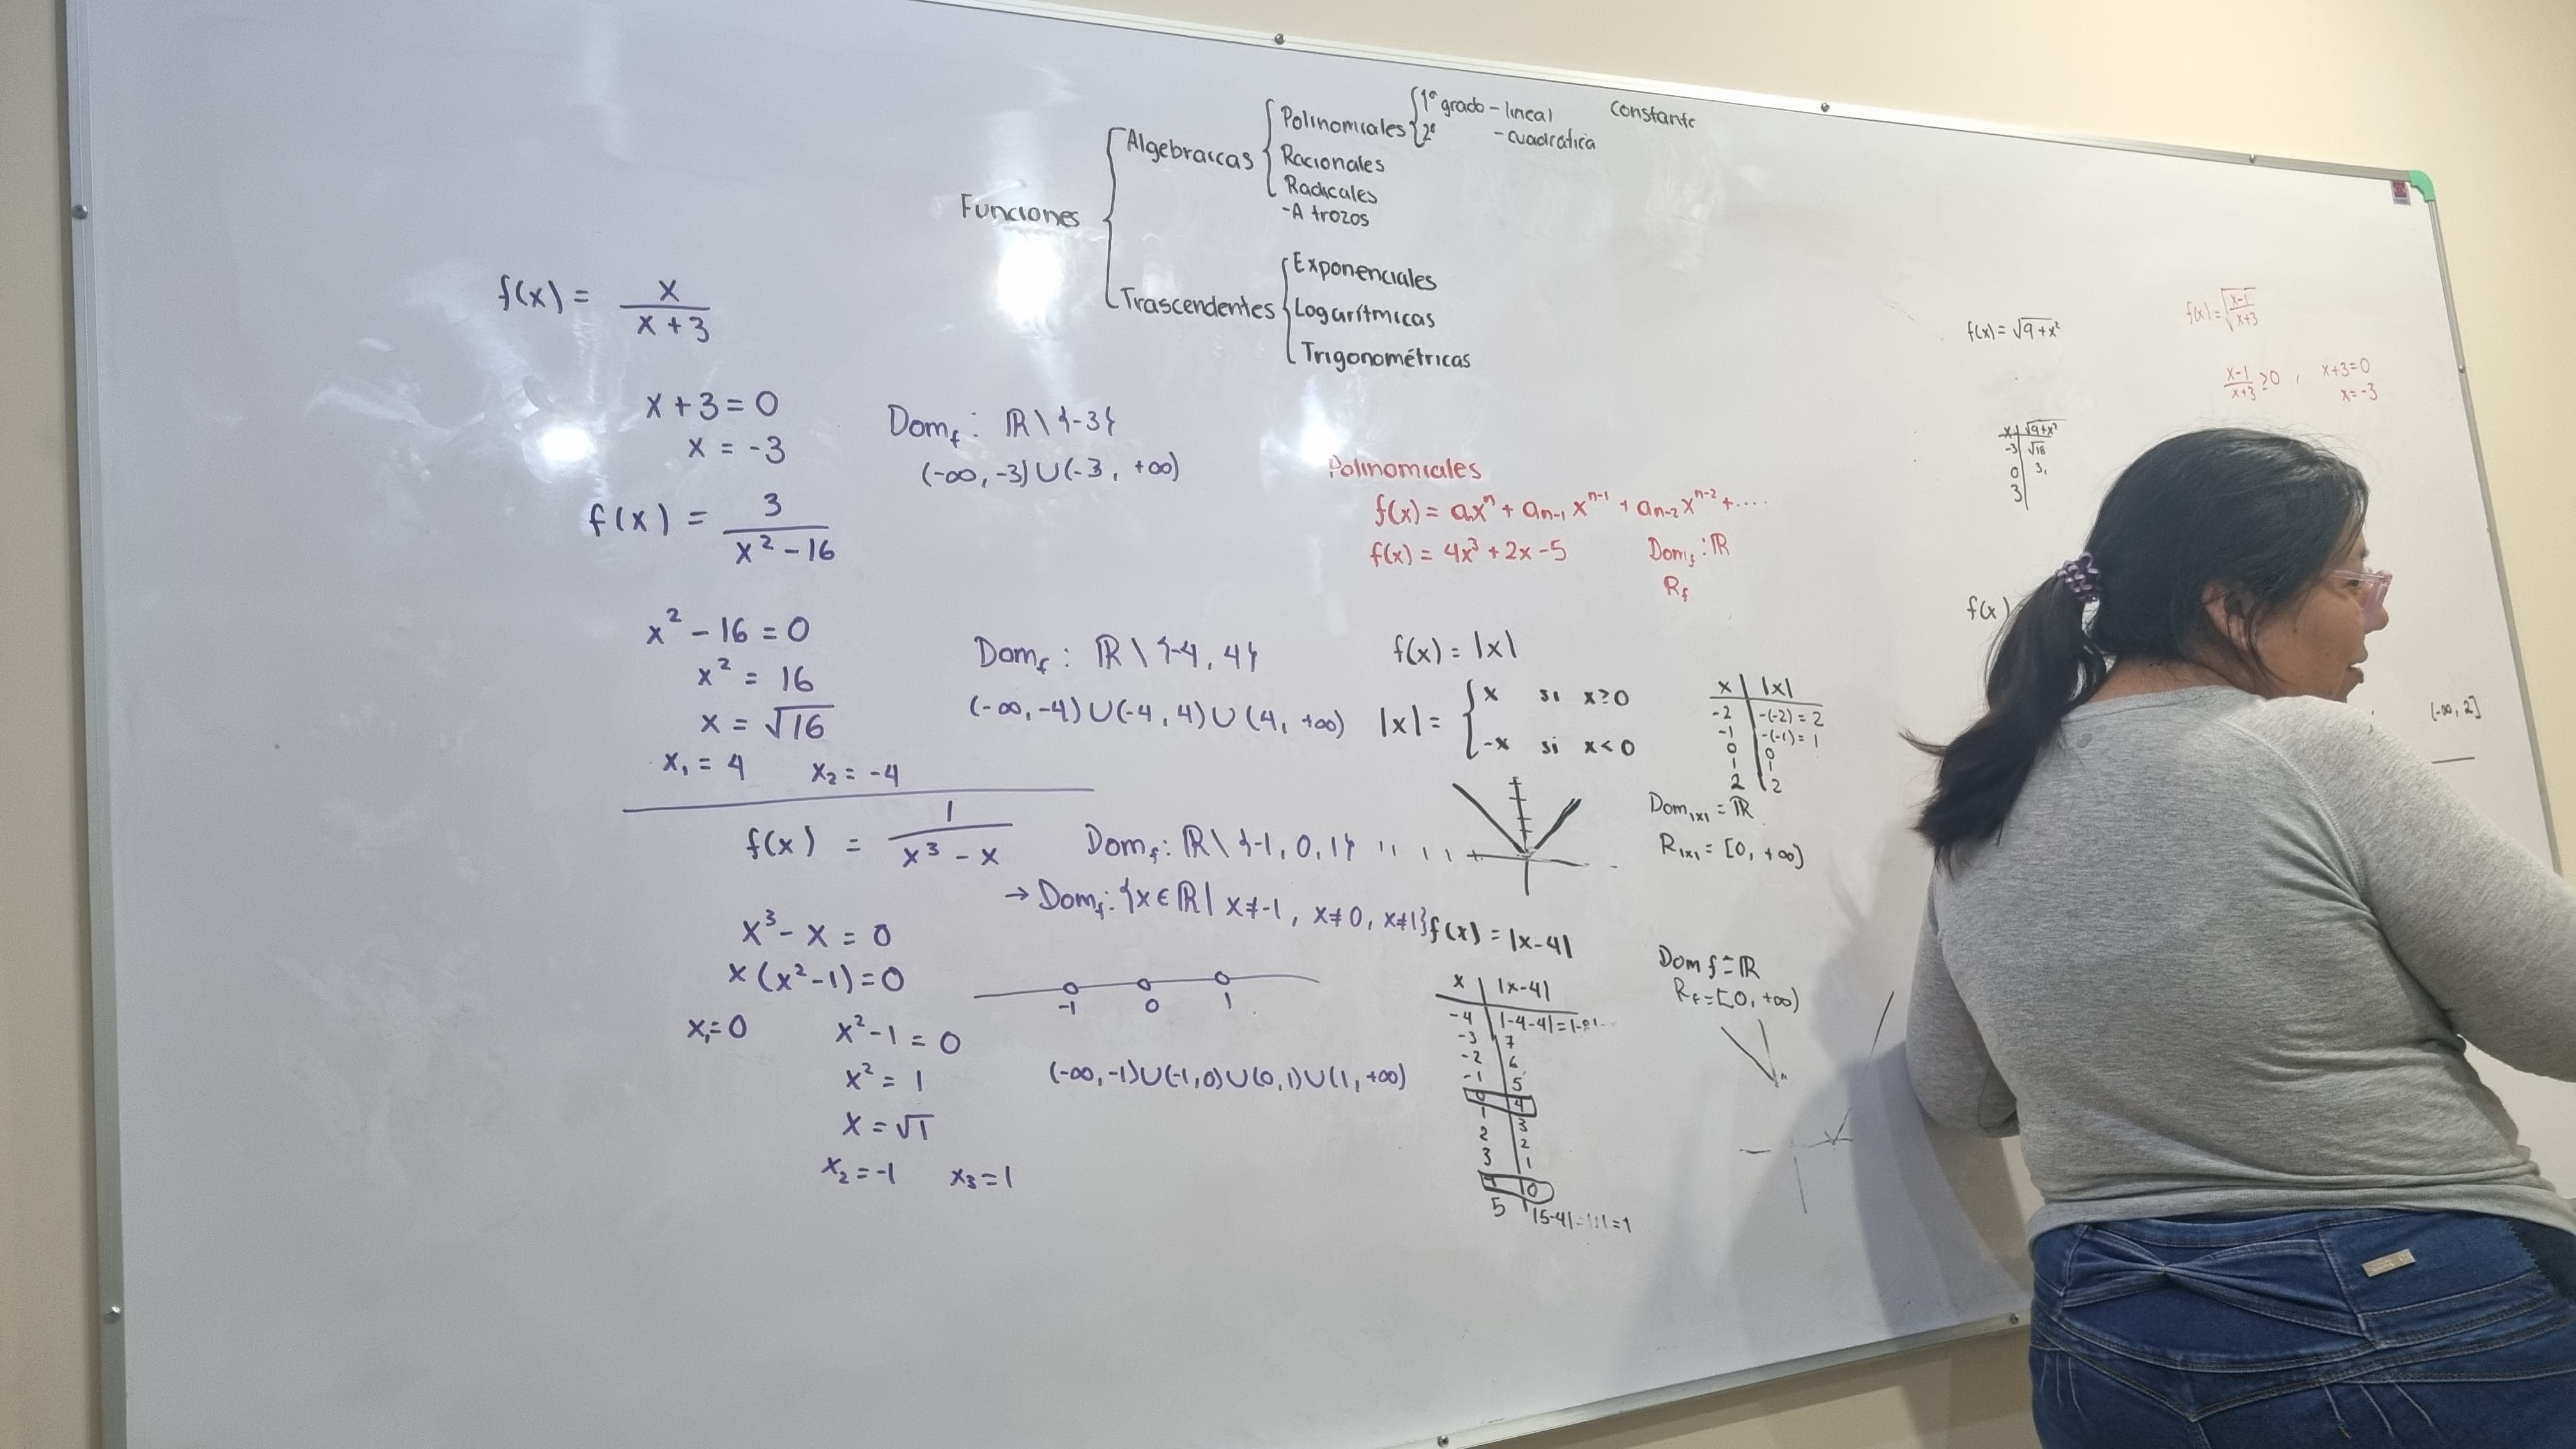 Funciones
Algebraicas
Polinomiales
1º grado - lineal
Constante
2º - cuadrática
Racionales
Radicales
- A trozos
Trascendentes
Exponenciales
Logarítmicas
Trigonométricas
f(x) = x / (x + 3)
x + 3 = 0
x = -3
Dom_f : ℝ \ {-3}
(-∞, -3) ∪ (-3, +∞)
f(x) = 3 / (x² - 16)
x² - 16 = 0
x² = 16
x = √16
x₁ = 4 x₂ = -4
Dom_f : ℝ \ {-4, 4}
(-∞, -4) ∪ (-4, 4) ∪ (4, +∞)
f(x) = 1 / (x³ - x)
Dom_f : ℝ \ {-1, 0, 1}
→ Dom_f : {x ∈ ℝ | x ≠ -1, x ≠ 0, x ≠ 1}
x³ - x = 0
x (x² - 1) = 0
x₁ = 0
x² - 1 = 0
x² = 1
x = √1
x₂ = -1 x₃ = 1
-1 0 1
(-∞, -1) ∪ (-1, 0) ∪ (0, 1) ∪ (1, +∞)
Polinomiales
f(x) = aₙxⁿ + aₙ₋₁ xⁿ⁻¹ + aₙ₋₂ xⁿ⁻² + ....
f(x) = 4x³ + 2x - 5
Dom_f : ℝ
R_f
f(x) = |x|
|x| = { x si x ≥ 0
-x si x < 0
x | |x|
-2 | -(-2) = 2
-1 | -(-1) = 1
0 | 0
1 | 1
2 | 2
Dom_|x| = ℝ
R_|x| = [0, +∞)
f(x) = |x-4|
x | |x-4|
-4 | |-4-4| =
-3 | 7
-2 | 6
-1 | 5
0 | 4
1 | 3
2 | 2
3 | 1
4 | 0
5 | |5-4| = |1| = 1
Dom f = ℝ
R_f = [0, +∞)
f(x) = √(9 + x²)
x | √(9+x²)
-3 | √18
0 | 3
3
f(x)
f(x) = √((x-1)/(x+3))
(x-1)/(x+3) ≥ 0 , x+3 = 0
x = -3
(-∞, 2]